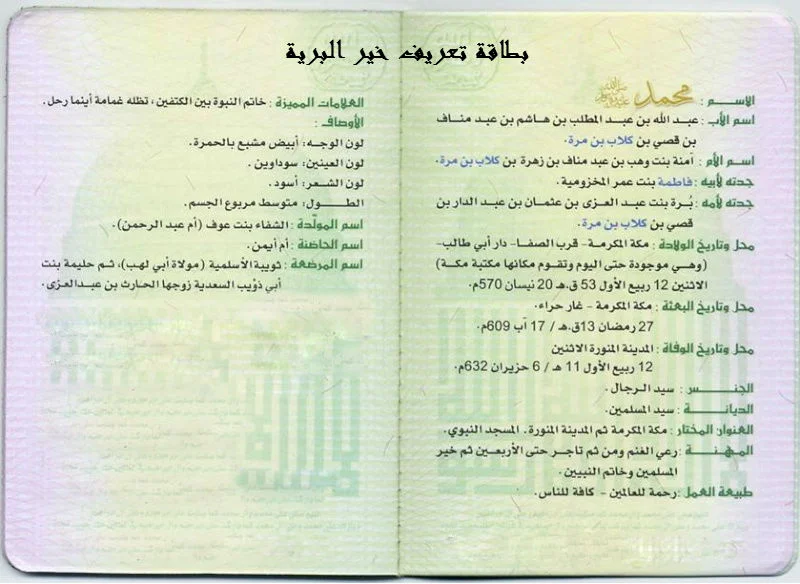 بطاقة تعريف خير البرية
الاســـم : محمد صلى الله عليه وسلم
اسم الأب: عبد الله بن عبد المطلب بن هاشم بن عبد مناف
بن قصي بن كلاب بن مرة.
اســم الأم : آمنة بنت وهب بن عبد مناف بن زهرة بن كلاب بن مرة.
جدته لأبيه : فاطمة بنت عمر المخزومية.
جدته لأمه : بُرة بنت عبد العزى بن عثمان بن عبد الدار بن
قصي بن كلاب بن مرة.
محل وتاريخ الولادة : مكة المكرمة- قرب الصفا- دار أبي طالب-
(وهي موجودة حتى اليوم وتقوم مكانها مكتبة مكة)
الاثنين 12 ربيع الأول 53 ق.هـ 20 نيسان 570م.
محل وتاريخ البعثة : مكة المكرمة - غار حراء.
27 رمضان 13ق.هـ / 17 آب 609م.
محل وتاريخ الوفاة : المدينة المنورة الاثنين
12 ربيع الأول 11 هـ / 6 حزيران 632م.
الجنـــس : سيد الرجال.
الديانـــة : سيد المسلمين.
العنوان المختار : مكة المكرمة ثم المدينة المنورة. المسجد النبوي.
المهنـــة : رعي الغنم ومن ثم تاجر حتى الأربعين ثم خير
المسلمين وخاتم النبيين.
طبيعة العمل : رحمة للعالمين - كافة للناس.
العلامات المميزة : خاتم النبوة بين الكتفين، تظله غمامة أينما رحل.
الأوصاف :
لون الوجـه: أبيض مشبع بالحمرة.
لون العينين: سوداوين.
لون الشـعر: أسود.
الطــــول: متوسط مربوع الجسم.
اسم المولّدة : الشفاء بنت عوف (أم عبد الرحمن).
اسم الحاضنة : أم أيمن.
اسم المرضعة : ثويبة الأسلمية (مولاة أبي لهب)، ثم حليمة بنت
أبي ذؤيب السعدية زوجها الحارث بن عبدالعزى.